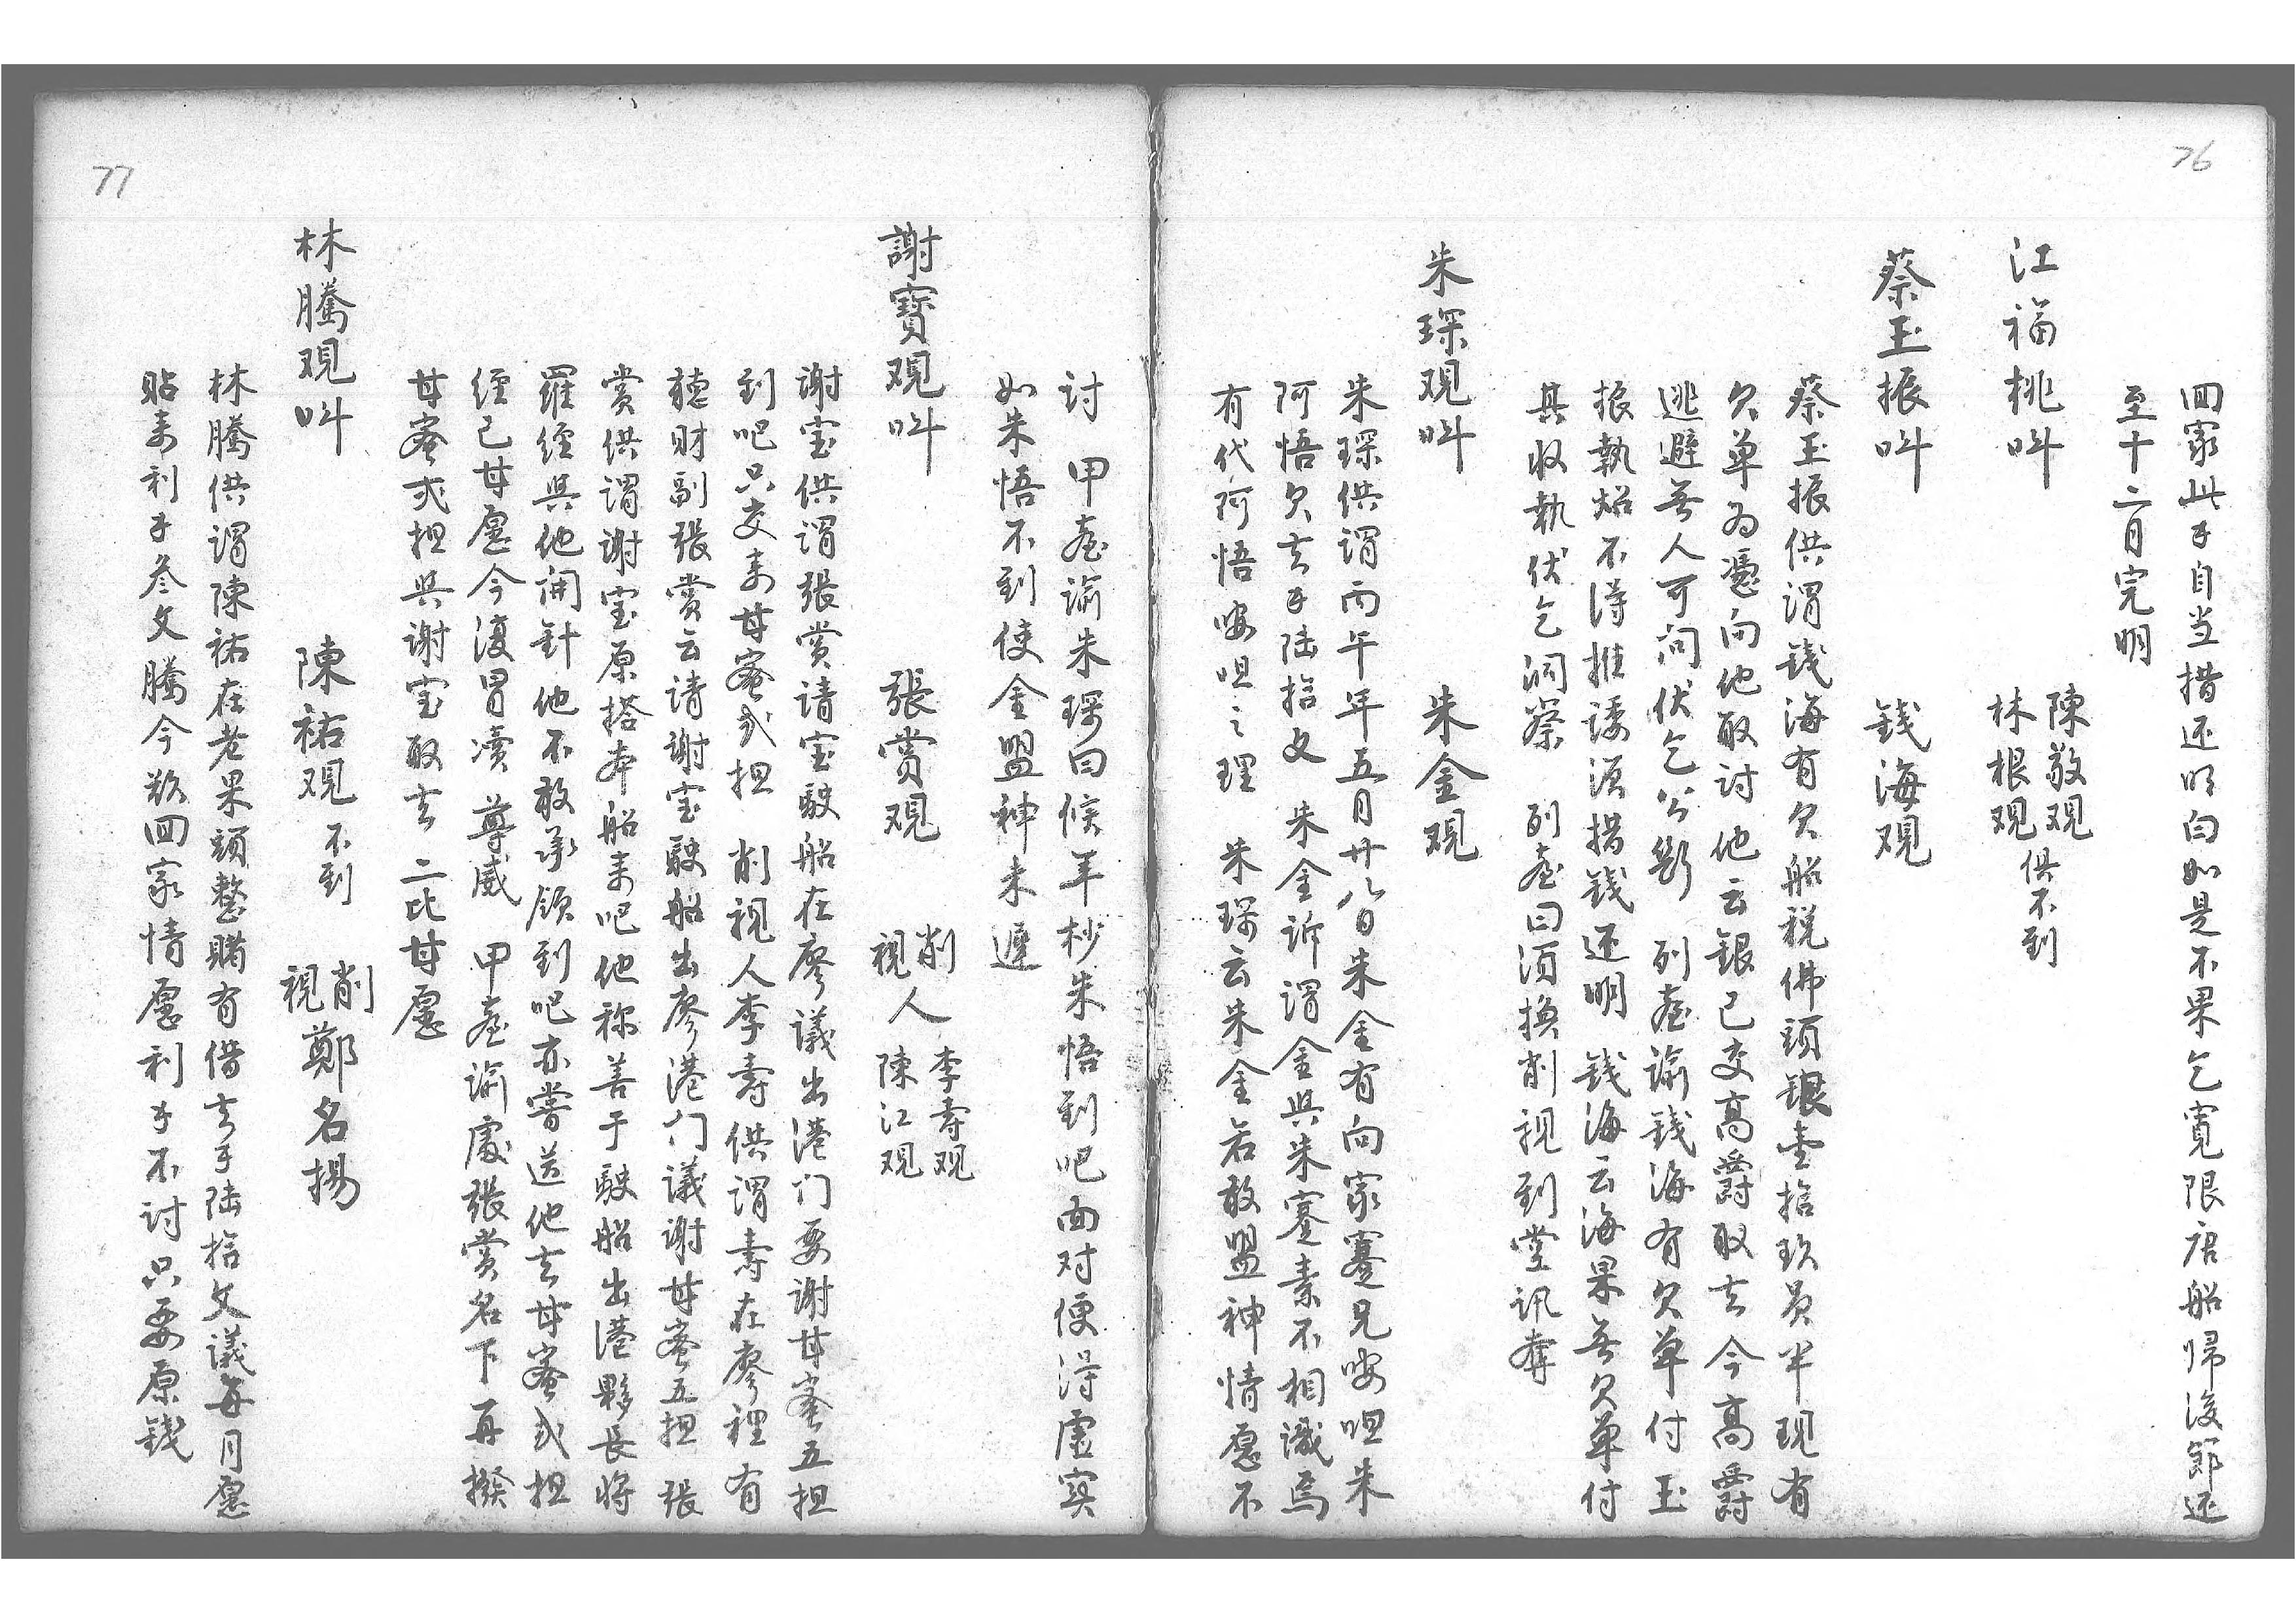 76
回家此手自当措还明白如是不果乞寬限唐船歸後節还
至十二月完明
江福桃叫 陳敬观 林根观 俱不到
蔡玉振叫 钱海观
蔡玉振供謂钱海有欠船税佛頭銀壹拾玖員半現有
欠单为憑向他取讨他云銀已交高爵取去今高爵
逃避無人可问伏乞公断 列臺諭钱海有欠单付玉
振執炤不得推諉須措钱还明 钱海云海果無欠单付
其收執伏乞洞察 列臺曰須換削視到堂訊奪
朱琛观叫 朱金观
朱琛供謂丙午年五月廿八日朱金有向家蹇兄咹呾朱
阿悟欠去手陆拾文 朱金訴謂金與朱蹇素不相識焉
有代阿悟咹呾之理 朱琛云朱金若敢盟神情愿不
讨 甲臺諭朱琛曰候年杪朱悟到吧面对便得虚实
如朱悟不到使金盟神未遲
謝寶观叫 張賞观 削視人 李壽观 陳江观
謝宝供謂張賞请宝駛船在廖議出港门要謝甘蜜五担
到吧只交来甘蜜弍担 削視人李壽供謂壽在廖裡有
聽財副張賞云请謝宝駛船出廖港门議謝甘蜜五担 張
賞供謂謝宝原搭本船来吧他称善于駛船出港夥長将
羅經與他開針他不敢承領到吧亦嘗送他去甘蜜弍担
經已甘愿今復冒瀆 尊威 甲臺諭處張賞名下再撥
甘蜜弍担與謝宝取去 二比甘愿
77
林騰观叫 陳祐观 不到 削視 鄭名揚
林騰供謂陳祐在老果頭整賭有借去手陆拾文議每月愿
貼来利手叁文騰今欲回家情愿利手不讨只要原钱